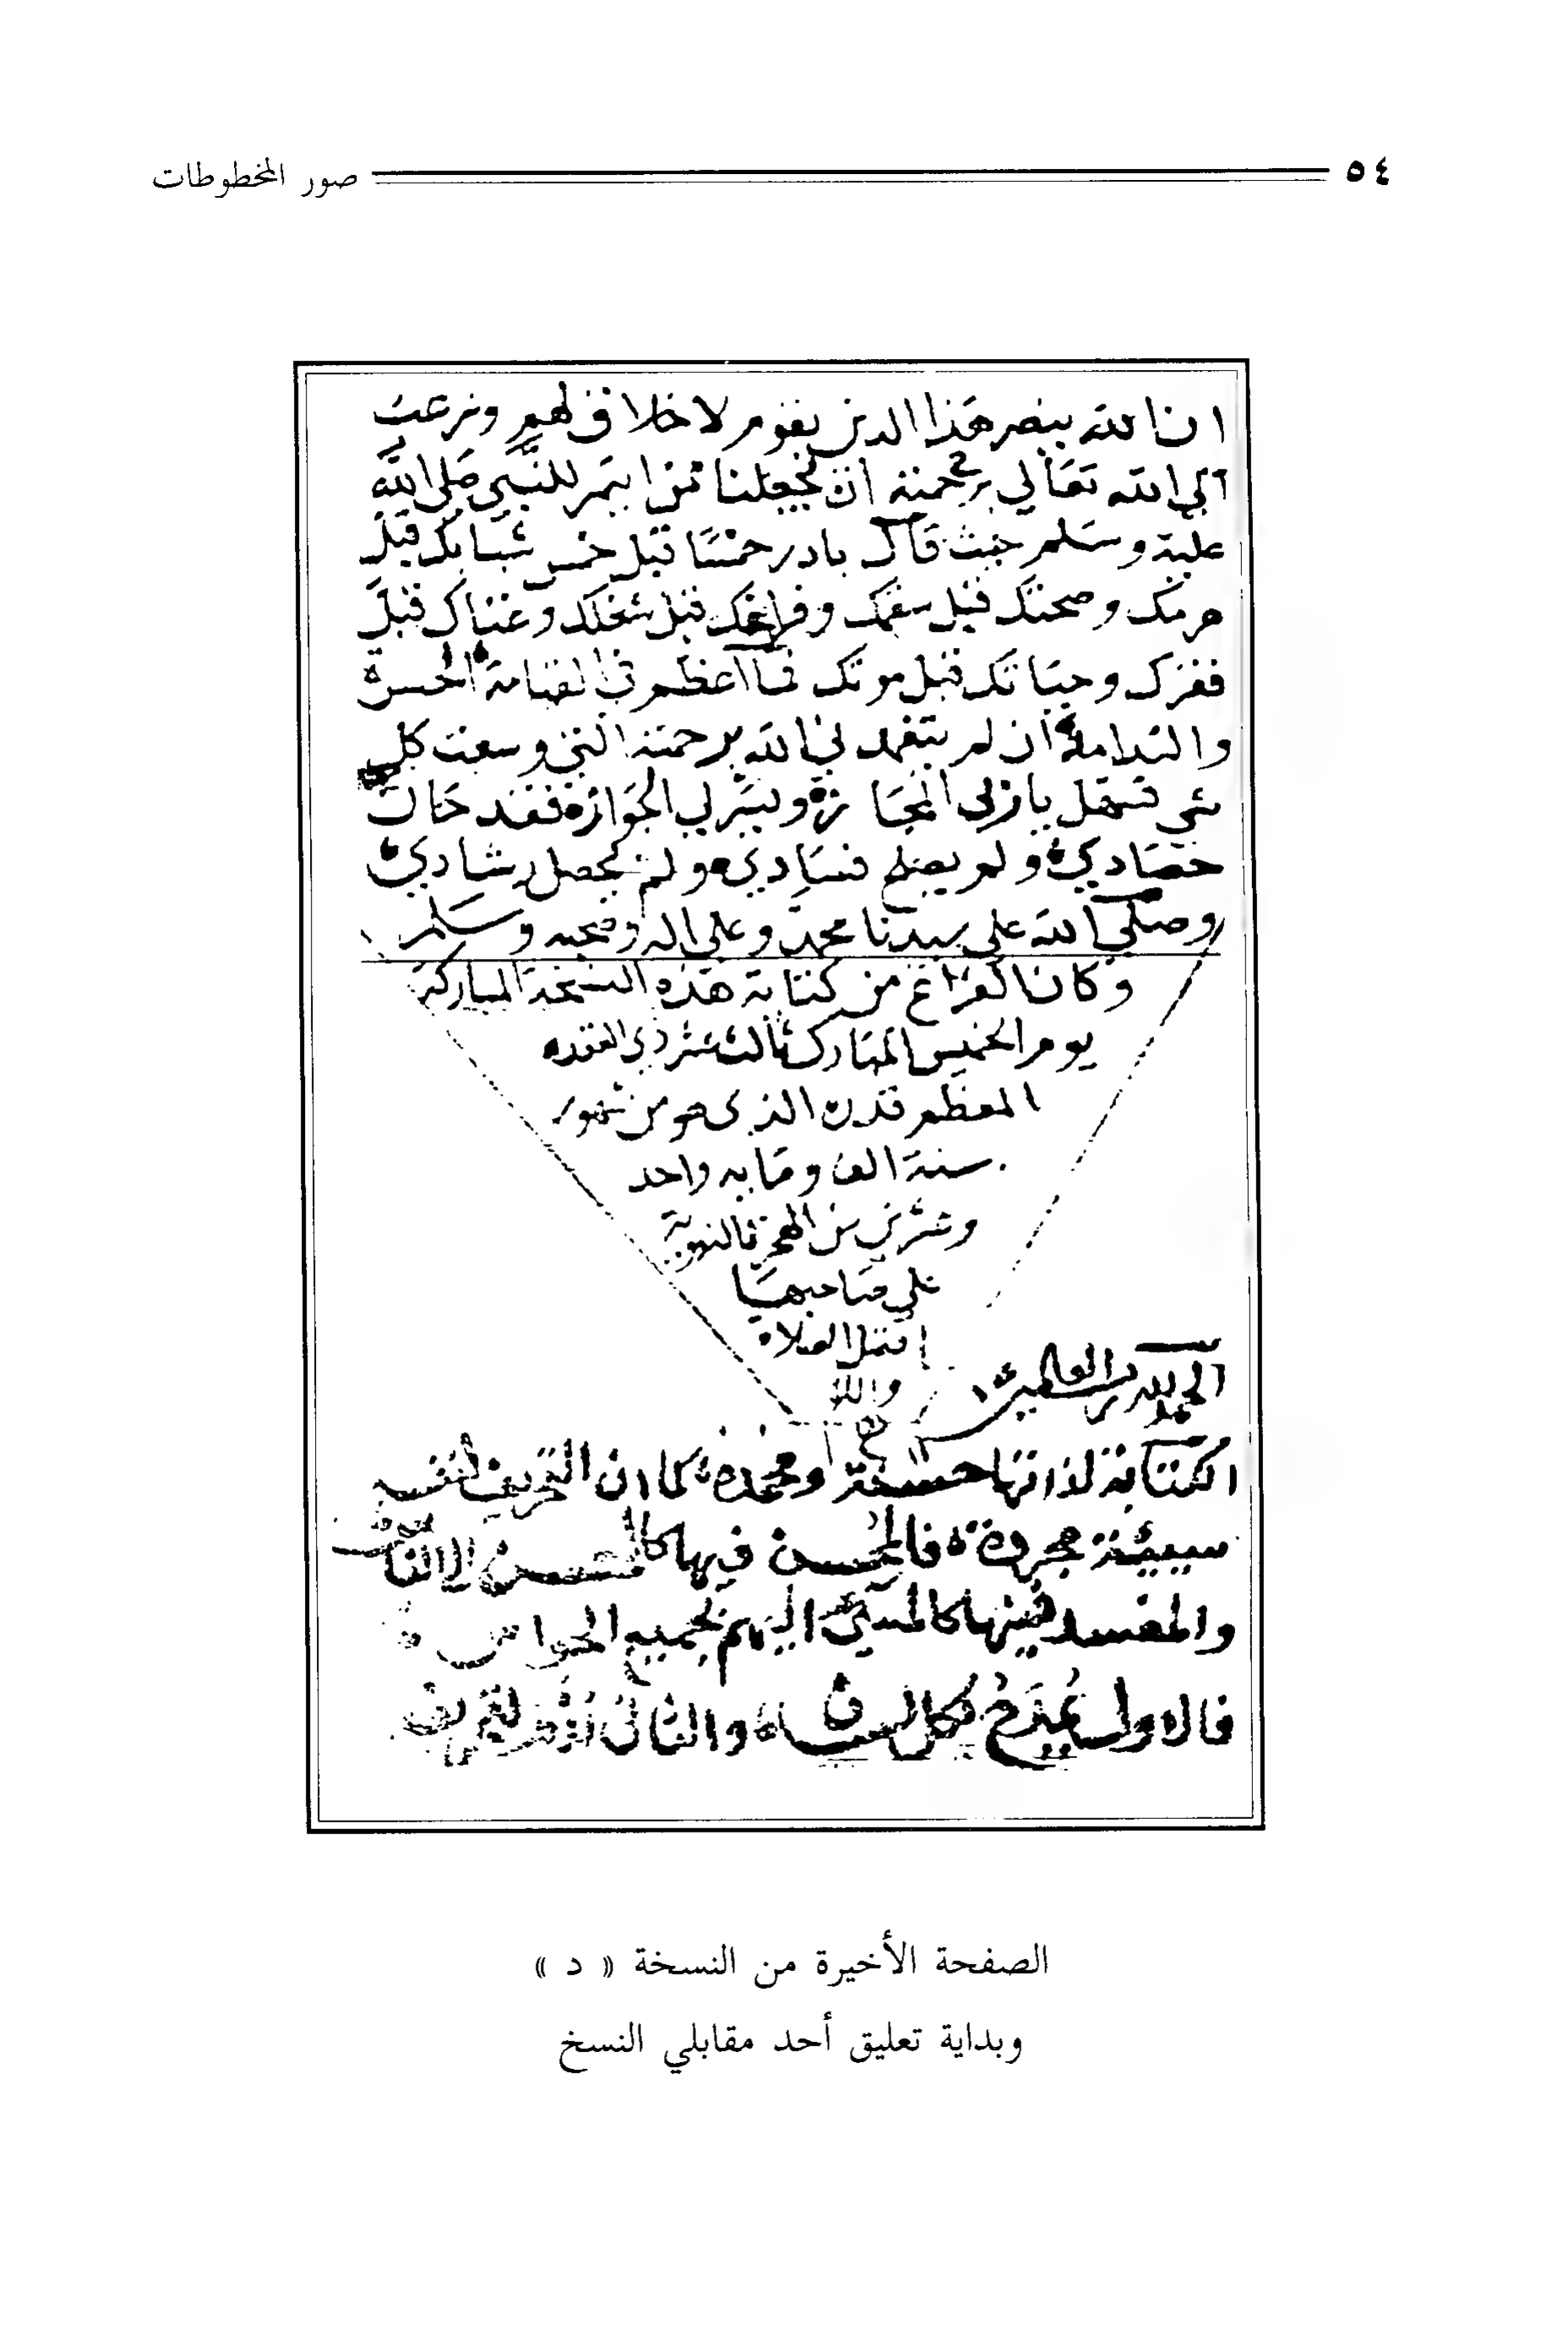 ٥٤ صور المخطوطات
ان الله ينصر هذا الدين بقوم لا خلاق لهم ونرغب
الى الله تعالى برحمته ان يجعلنا ممن ايتمر للنبي صلى الله
عليه وسلم حيث قال بادر خمسا قبل خمس شبابك قبل
هرمك وصحتك قبل سقمك وفراغك قبل شغلك وغناك قبل
فقرك وحياتك قبل موتك فما اعظم في القيامة الحسرة
والندامة ان لم يتغمدني الله برحمته التي وسعت كل
شي فسهل يا رب المجازة ويسر لي الجوازة فقد حان
حصادي ولم يصلح فسادي ولم يحصل رشادي
وصلى الله على سيدنا محمد وعلى اله وصحبه وسلم
وكان الفراغ من كتابة هذه النسخة المباركة
يوم الخميس المبارك ثالث عشر ذي القعده
المعظم قدره الذي هو من شهور
سنة الف ومايه واحد
وعشرين من الهجرة النبوية
على صاحبها
افضل الصلاه
الحمد لله رب العالمين
الكتابة لذاتها حسنة ومحمدة كما ان التحريف لنفسه
سيئة مجردة فالمحسن فيها كالمحسن الى الناس
والمفسد فيها كالمسيئ اليهم بجميع الحواس
فالاول يمدح بكل لسان والثاني
الصفحة الأخيرة من النسخة « د »
وبداية تعليق أحد مقابلي النسخ